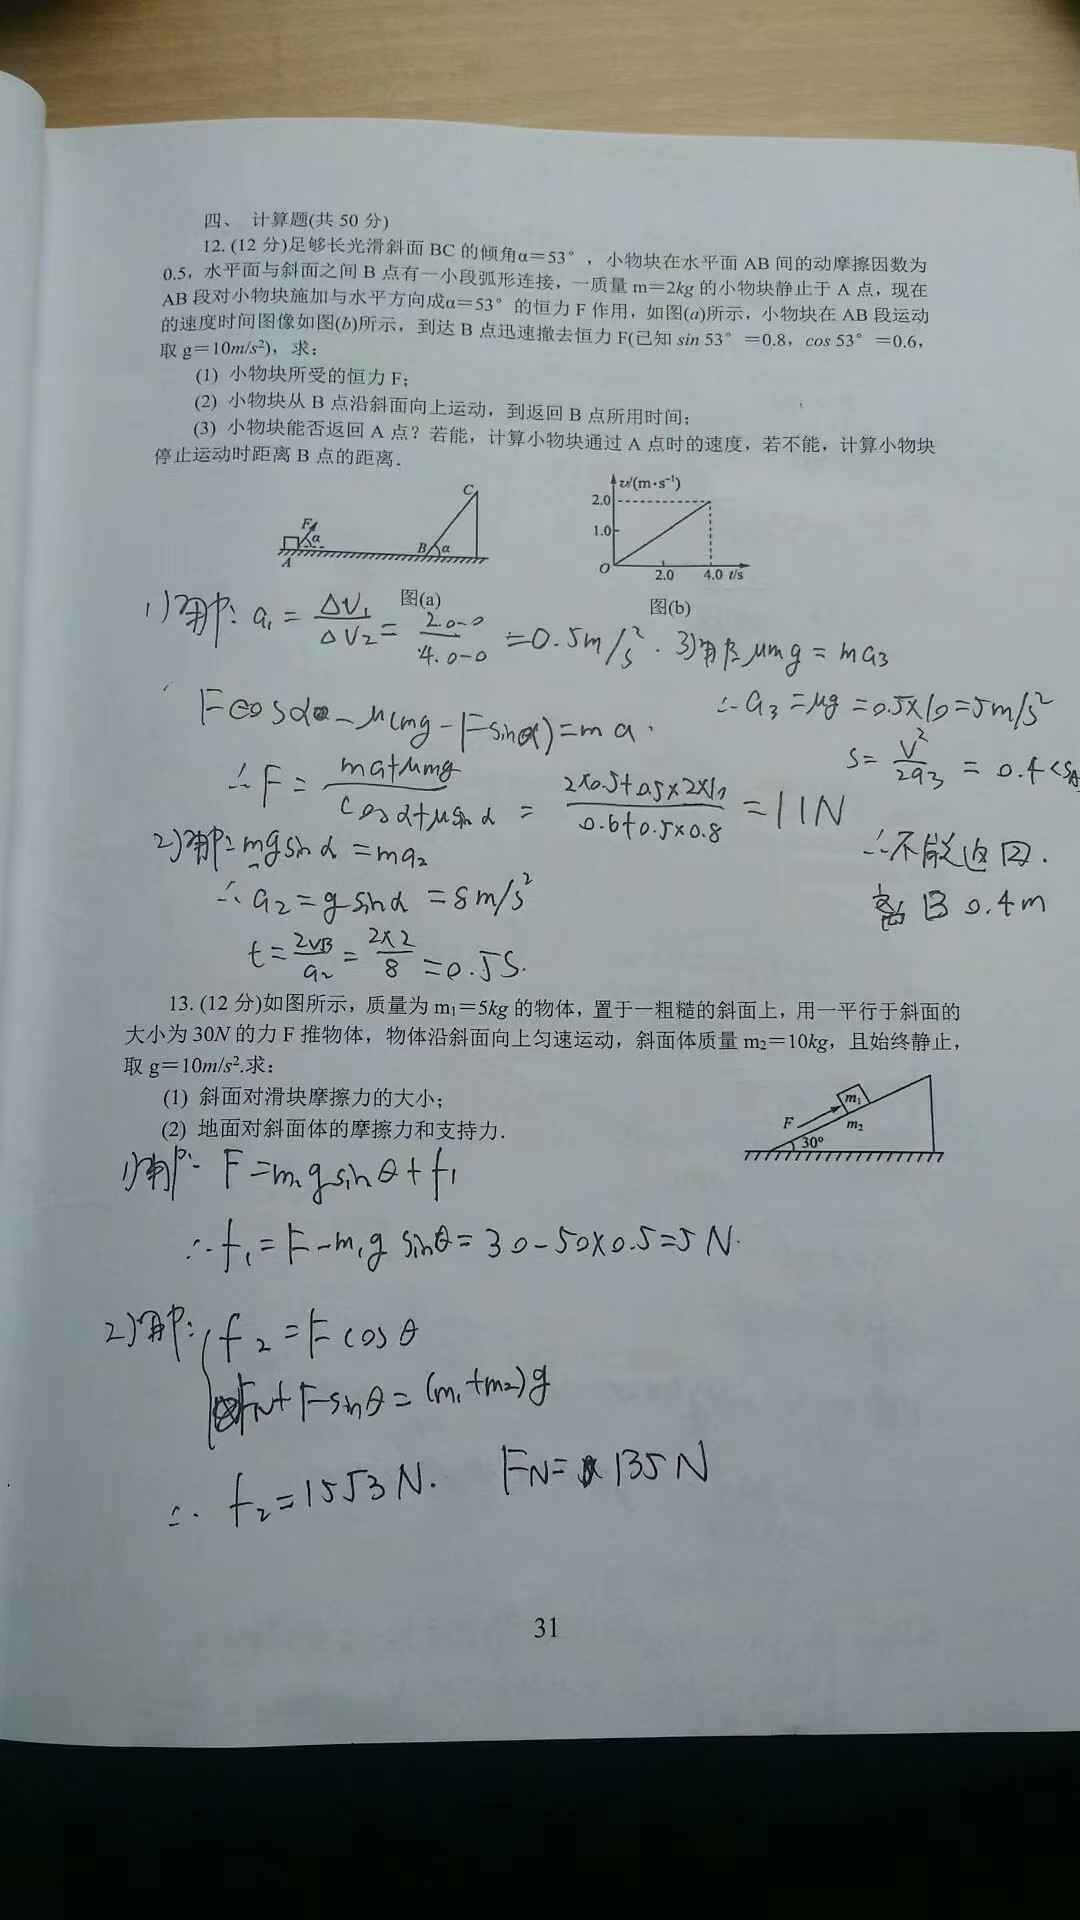 四、 计算题(共 50 分)
12. (12 分)足够长光滑斜面 BC 的倾角α＝53°，小物块在水平面 AB 间的动摩擦因数为
0.5，水平面与斜面之间 B 点有一小段弧形连接，一质量 m＝2kg 的小物块静止于 A 点，现在
AB 段对小物块施加与水平方向成α＝53°的恒力 F 作用，如图(a)所示，小物块在 AB 段运动
的速度时间图像如图(b)所示，到达 B 点迅速撤去恒力 F(已知 sin 53°＝0.8，cos 53°＝0.6，
取 g＝10m/s²)，求：
(1) 小物块所受的恒力 F；
(2) 小物块从 B 点沿斜面向上运动，到返回 B 点所用时间；
(3) 小物块能否返回 A 点？若能，计算小物块通过 A 点时的速度，若不能，计算小物块
停止运动时距离 B 点的距离．
F α A B α C
图(a)
v/(m·s⁻¹)
2.0
1.0
O 2.0 4.0 t/s
图(b)
1) a₁ = ΔV₁/ΔV₂ = 2.0-0/4.0-0 =0.5m/s².
Fcosα-μ(mg-Fsinα)=ma.
∴F= ma+μmg/cosα+μsinα = 2×0.5+0.5×2×10/0.6+0.5×0.8 =11N
2) mgsinα=ma₂
∴a₂=gsinα=8m/s²
t=2vB/a₂=2×2/8=0.5S.
3) μmg=ma₃
∴a₃=μg=0.5×10=5m/s²
s=v²/2a₃=0.4<sA
∴不能返回.
离B 0.4m
13. (12 分)如图所示，质量为 m₁＝5kg 的物体，置于一粗糙的斜面上，用一平行于斜面的
大小为 30N 的力 F 推物体，物体沿斜面向上匀速运动，斜面体质量 m₂＝10kg，且始终静止，
取 g＝10m/s².求：
(1) 斜面对滑块摩擦力的大小；
(2) 地面对斜面体的摩擦力和支持力．
F m₁ m₂ 30°
1) F=m₁gsinθ+f₁
∴f₁=F-m₁g sinθ=30-50×0.5=5N.
2) f₂=Fcosθ
FN+Fsinθ=(m₁+m₂)g
∴ f₂=15√3N. FN=135N
31